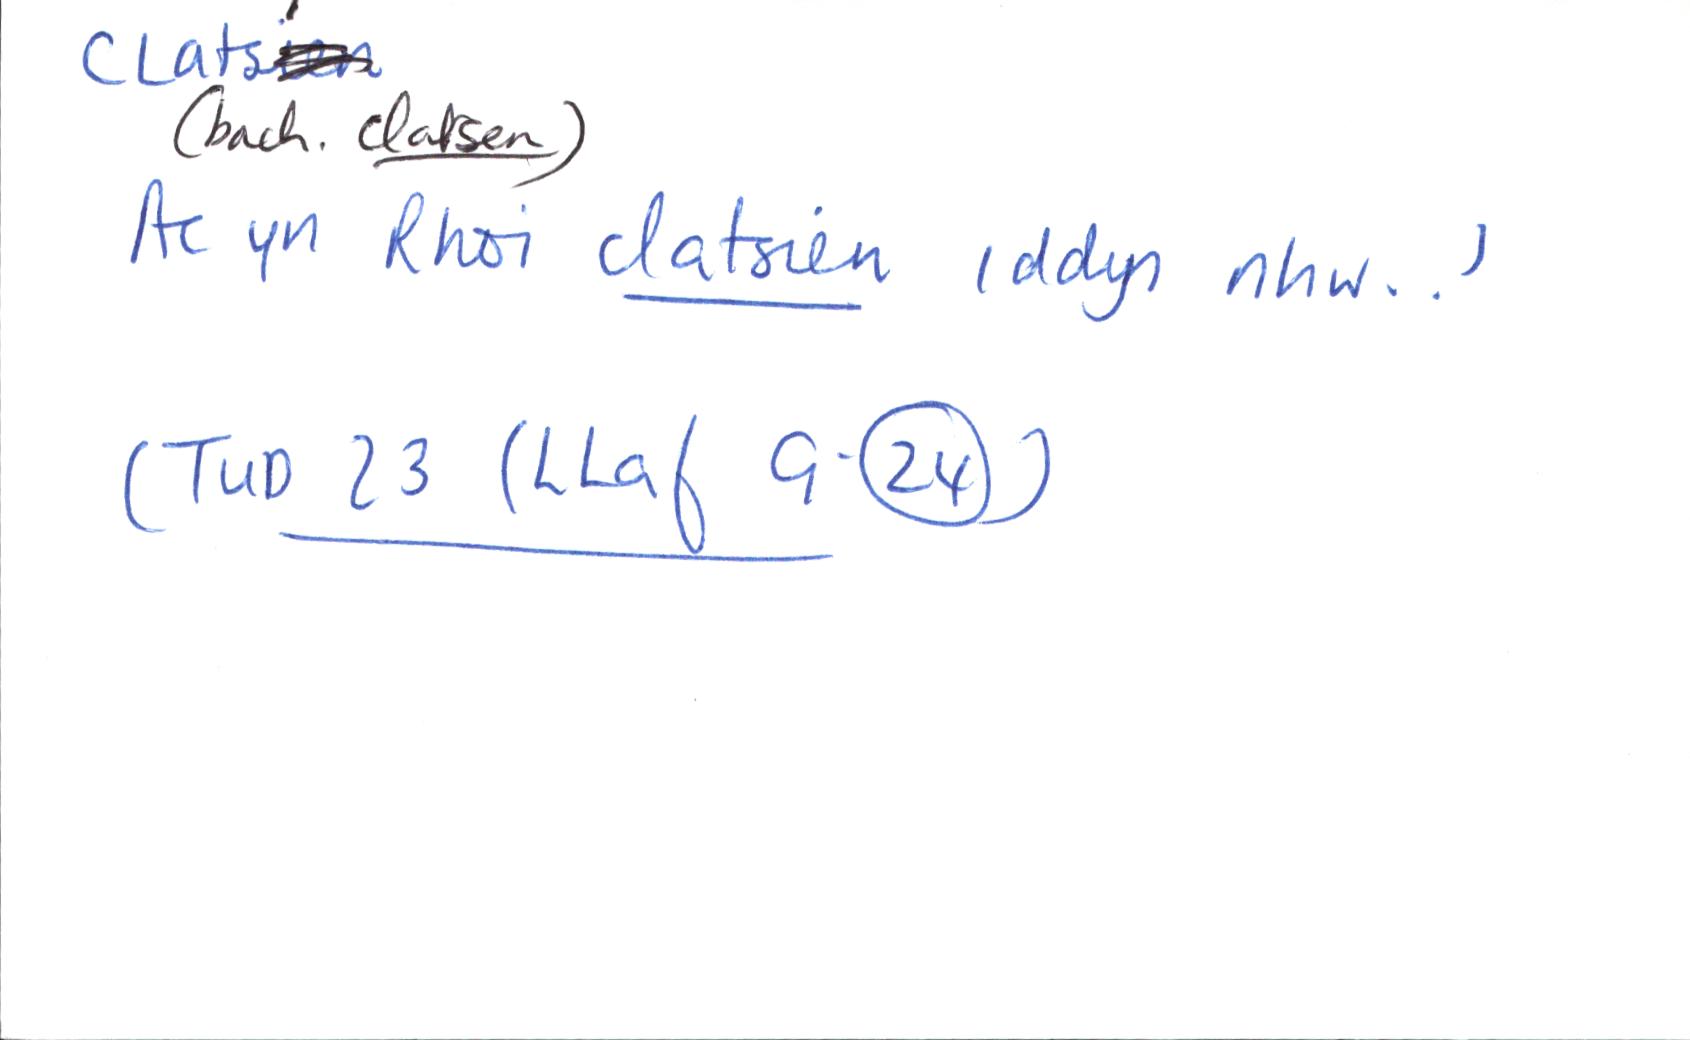 CLats
(bach. clatsen)
Ac yn Rhoi clatsien iddyn nhw..'
(TUD 23 (LLaf 9-24)